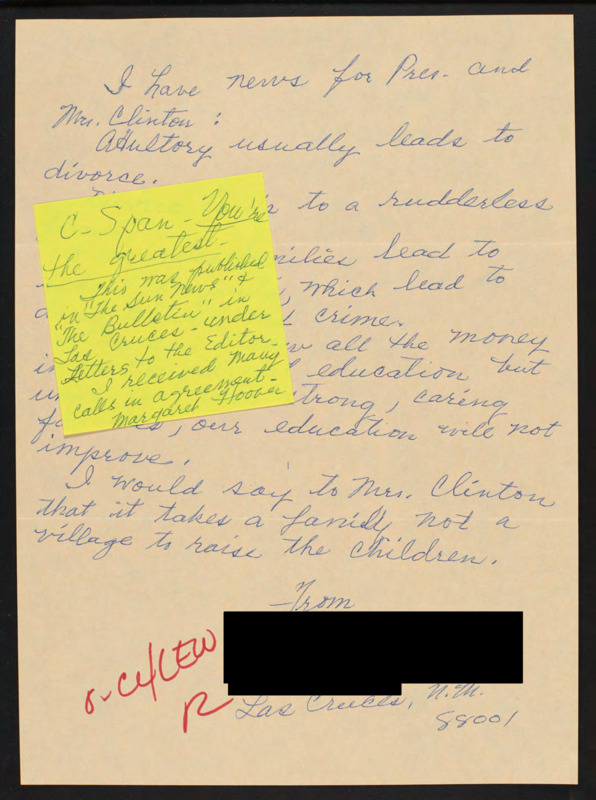 I have news for Pres. and
Mrs. Clinton :
Adultory usually leads to
divorce.
to a rudderless
lead to
, which lead to
crime.
all the money
education but
caring
, our education will not
improve.
I would say to Mrs. Clinton
that it takes a family not a
village to raise the children.
From
Las Cruces, N.M.
88001
C-Span - You're
the greatest.
This was published
in "The Sun News" &
"The Bulletin" in
Las Cruces - under
Letters to the Editor.
I received many
calls in agreement -
Margaret Hoover
R